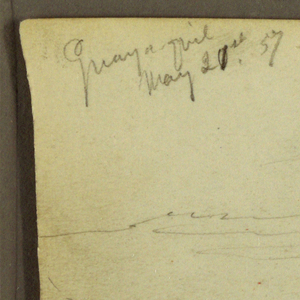 Guayaquil
May 21st. 57